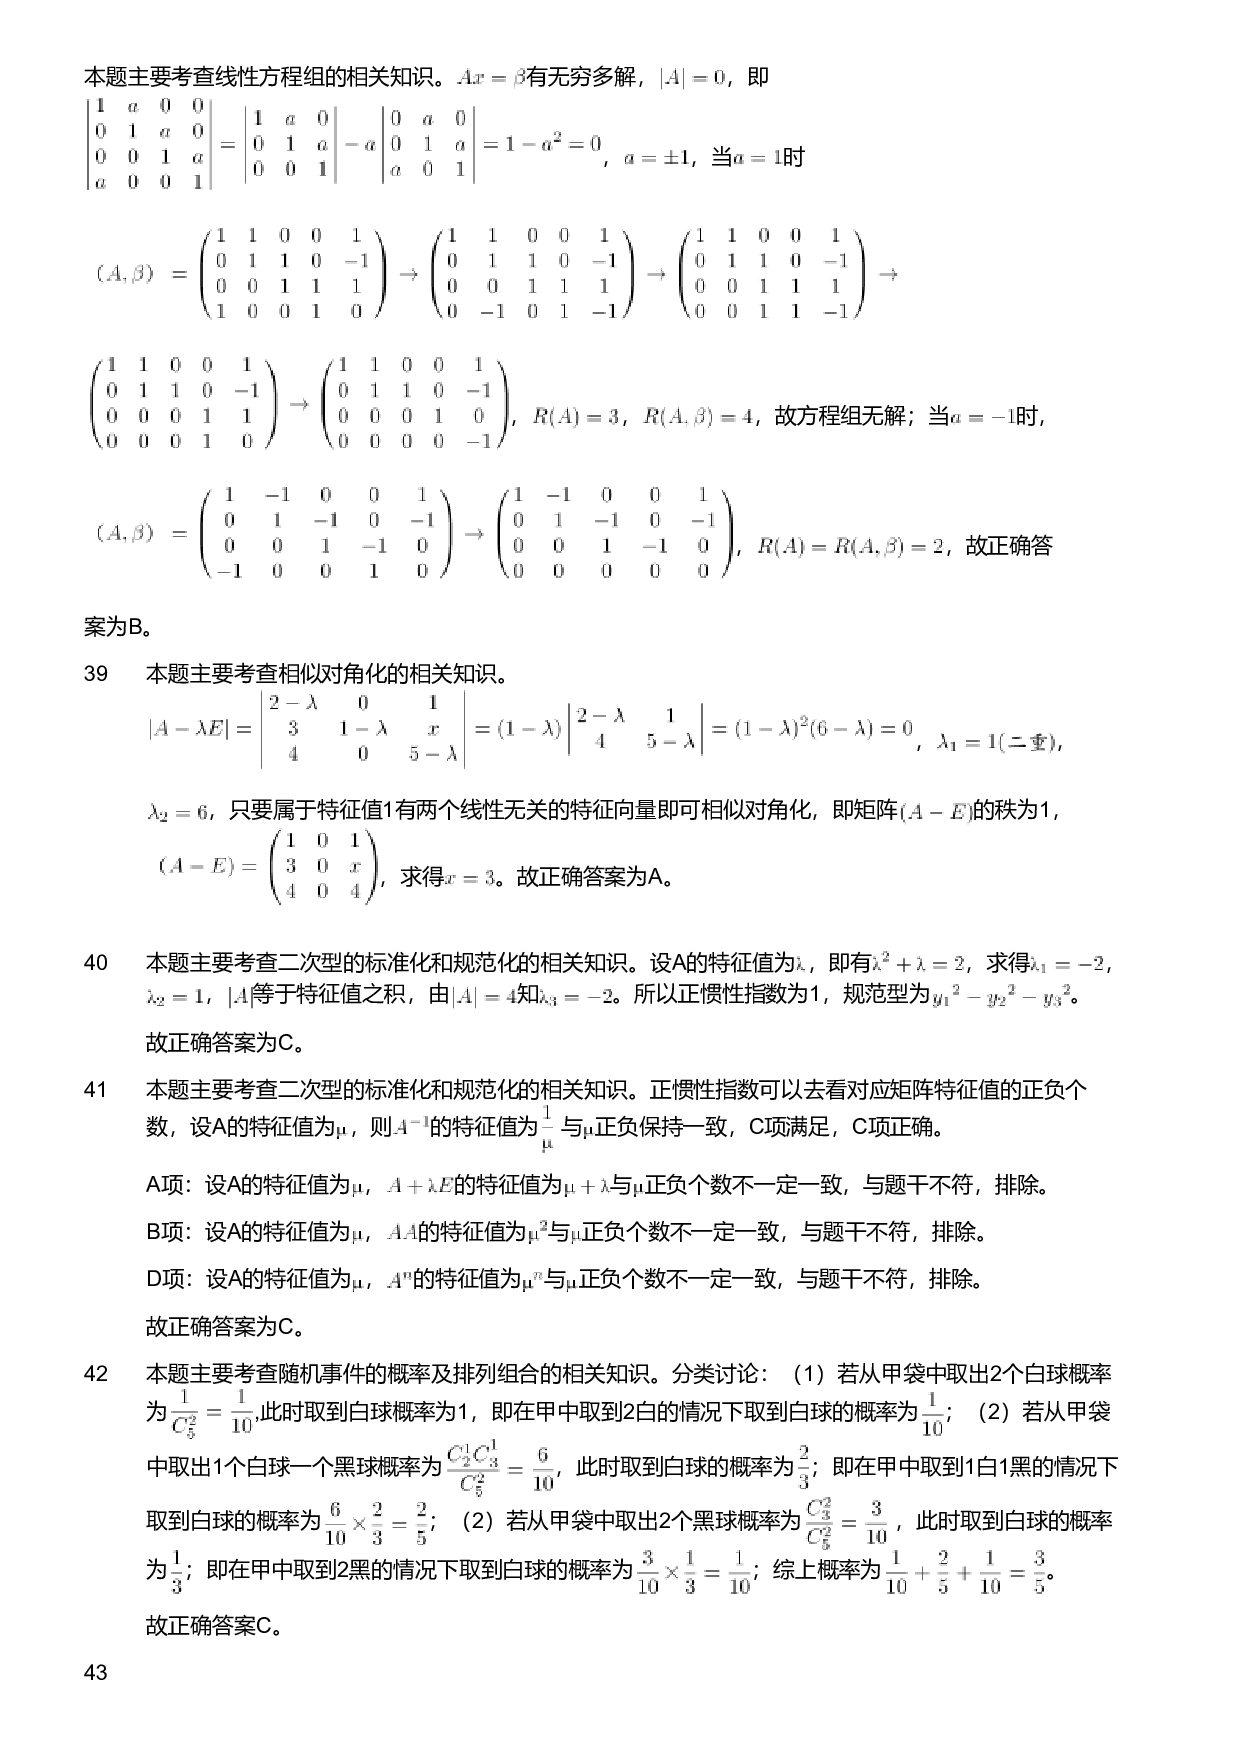 本题主要考查线性方程组的相关知识。$Ax=\beta$有无穷多解，$|A|=0$，即
$\begin{vmatrix}1&a&0&0\\0&1&a&0\\0&0&1&a\\a&0&0&1\end{vmatrix}=\begin{vmatrix}1&a&0\\0&1&a\\0&0&1\end{vmatrix}-a\begin{vmatrix}0&a&0\\0&1&a\\a&0&1\end{vmatrix}=1-a^2=0$，$a=\pm1$，当$a=1$时
$(A,\beta)=\begin{pmatrix}1&1&0&0&1\\0&1&1&0&-1\\0&0&1&1&1\\1&0&0&1&0\end{pmatrix}\to\begin{pmatrix}1&1&0&0&1\\0&1&1&0&-1\\0&0&1&1&1\\0&-1&0&1&-1\end{pmatrix}\to\begin{pmatrix}1&1&0&0&1\\0&1&1&0&-1\\0&0&1&1&1\\0&0&1&1&-1\end{pmatrix}\to$
$\begin{pmatrix}1&1&0&0&1\\0&1&1&0&-1\\0&0&0&1&1\\0&0&0&1&0\end{pmatrix}\to\begin{pmatrix}1&1&0&0&1\\0&1&1&0&-1\\0&0&0&1&0\\0&0&0&0&-1\end{pmatrix}$，$R(A)=3$，$R(A,\beta)=4$，故方程组无解；当$a=-1$时，
$(A,\beta)=\begin{pmatrix}1&-1&0&0&1\\0&1&-1&0&-1\\0&0&1&-1&0\\-1&0&0&1&0\end{pmatrix}\to\begin{pmatrix}1&-1&0&0&1\\0&1&-1&0&-1\\0&0&1&-1&0\\0&0&0&0&0\end{pmatrix}$，$R(A)=R(A,\beta)=2$，故正确答
案为B。
39 本题主要考查相似对角化的相关知识。
$|A-\lambda E|=\begin{vmatrix}2-\lambda&0&1\\3&1-\lambda&x\\4&0&5-\lambda\end{vmatrix}=(1-\lambda)\begin{vmatrix}2-\lambda&1\\4&5-\lambda\end{vmatrix}=(1-\lambda)^2(6-\lambda)=0$，$\lambda_1=1$(二重)，
$\lambda_2=6$，只要属于特征值1有两个线性无关的特征向量即可相似对角化，即矩阵$(A-E)$的秩为1，
$(A-E)=\begin{pmatrix}1&0&1\\3&0&x\\4&0&4\end{pmatrix}$，求得$x=3$。故正确答案为A。
40 本题主要考查二次型的标准化和规范化的相关知识。设A的特征值为$\lambda$，即有$\lambda^2+\lambda=2$，求得$\lambda_1=-2$，
$\lambda_2=1$，$|A|$等于特征值之积，由$|A|=4$知$\lambda_3=-2$。所以正惯性指数为1，规范型为${y_1}^2-{y_2}^2-{y_3}^2$。
故正确答案为C。
41 本题主要考查二次型的标准化和规范化的相关知识。正惯性指数可以去看对应矩阵特征值的正负个
数，设A的特征值为μ，则$A^{-1}$的特征值为$\frac{1}{μ}$与μ正负保持一致，C项满足，C项正确。
A项：设A的特征值为μ，$A+\lambda E$的特征值为$μ+\lambda$与μ正负个数不一定一致，与题干不符，排除。
B项：设A的特征值为μ，$AA$的特征值为$μ^2$与μ正负个数不一定一致，与题干不符，排除。
D项：设A的特征值为μ，$A^n$的特征值为$μ^n$与μ正负个数不一定一致，与题干不符，排除。
故正确答案为C。
42 本题主要考查随机事件的概率及排列组合的相关知识。分类讨论：（1）若从甲袋中取出2个白球概率
为$\frac{1}{C_5^2}=\frac{1}{10}$,此时取到白球概率为1，即在甲中取到2白的情况下取到白球的概率为$\frac{1}{10}$；（2）若从甲袋
中取出1个白球一个黑球概率为$\frac{C_2^1C_3^1}{C_5^2}=\frac{6}{10}$，此时取到白球的概率为$\frac{2}{3}$；即在甲中取到1白1黑的情况下
取到白球的概率为$\frac{6}{10}\times\frac{2}{3}=\frac{2}{5}$；（2）若从甲袋中取出2个黑球概率为$\frac{C_3^2}{C_5^2}=\frac{3}{10}$，此时取到白球的概率
为$\frac{1}{3}$；即在甲中取到2黑的情况下取到白球的概率为$\frac{3}{10}\times\frac{1}{3}=\frac{1}{10}$；综上概率为$\frac{1}{10}+\frac{2}{5}+\frac{1}{10}=\frac{3}{5}$。
故正确答案C。
43